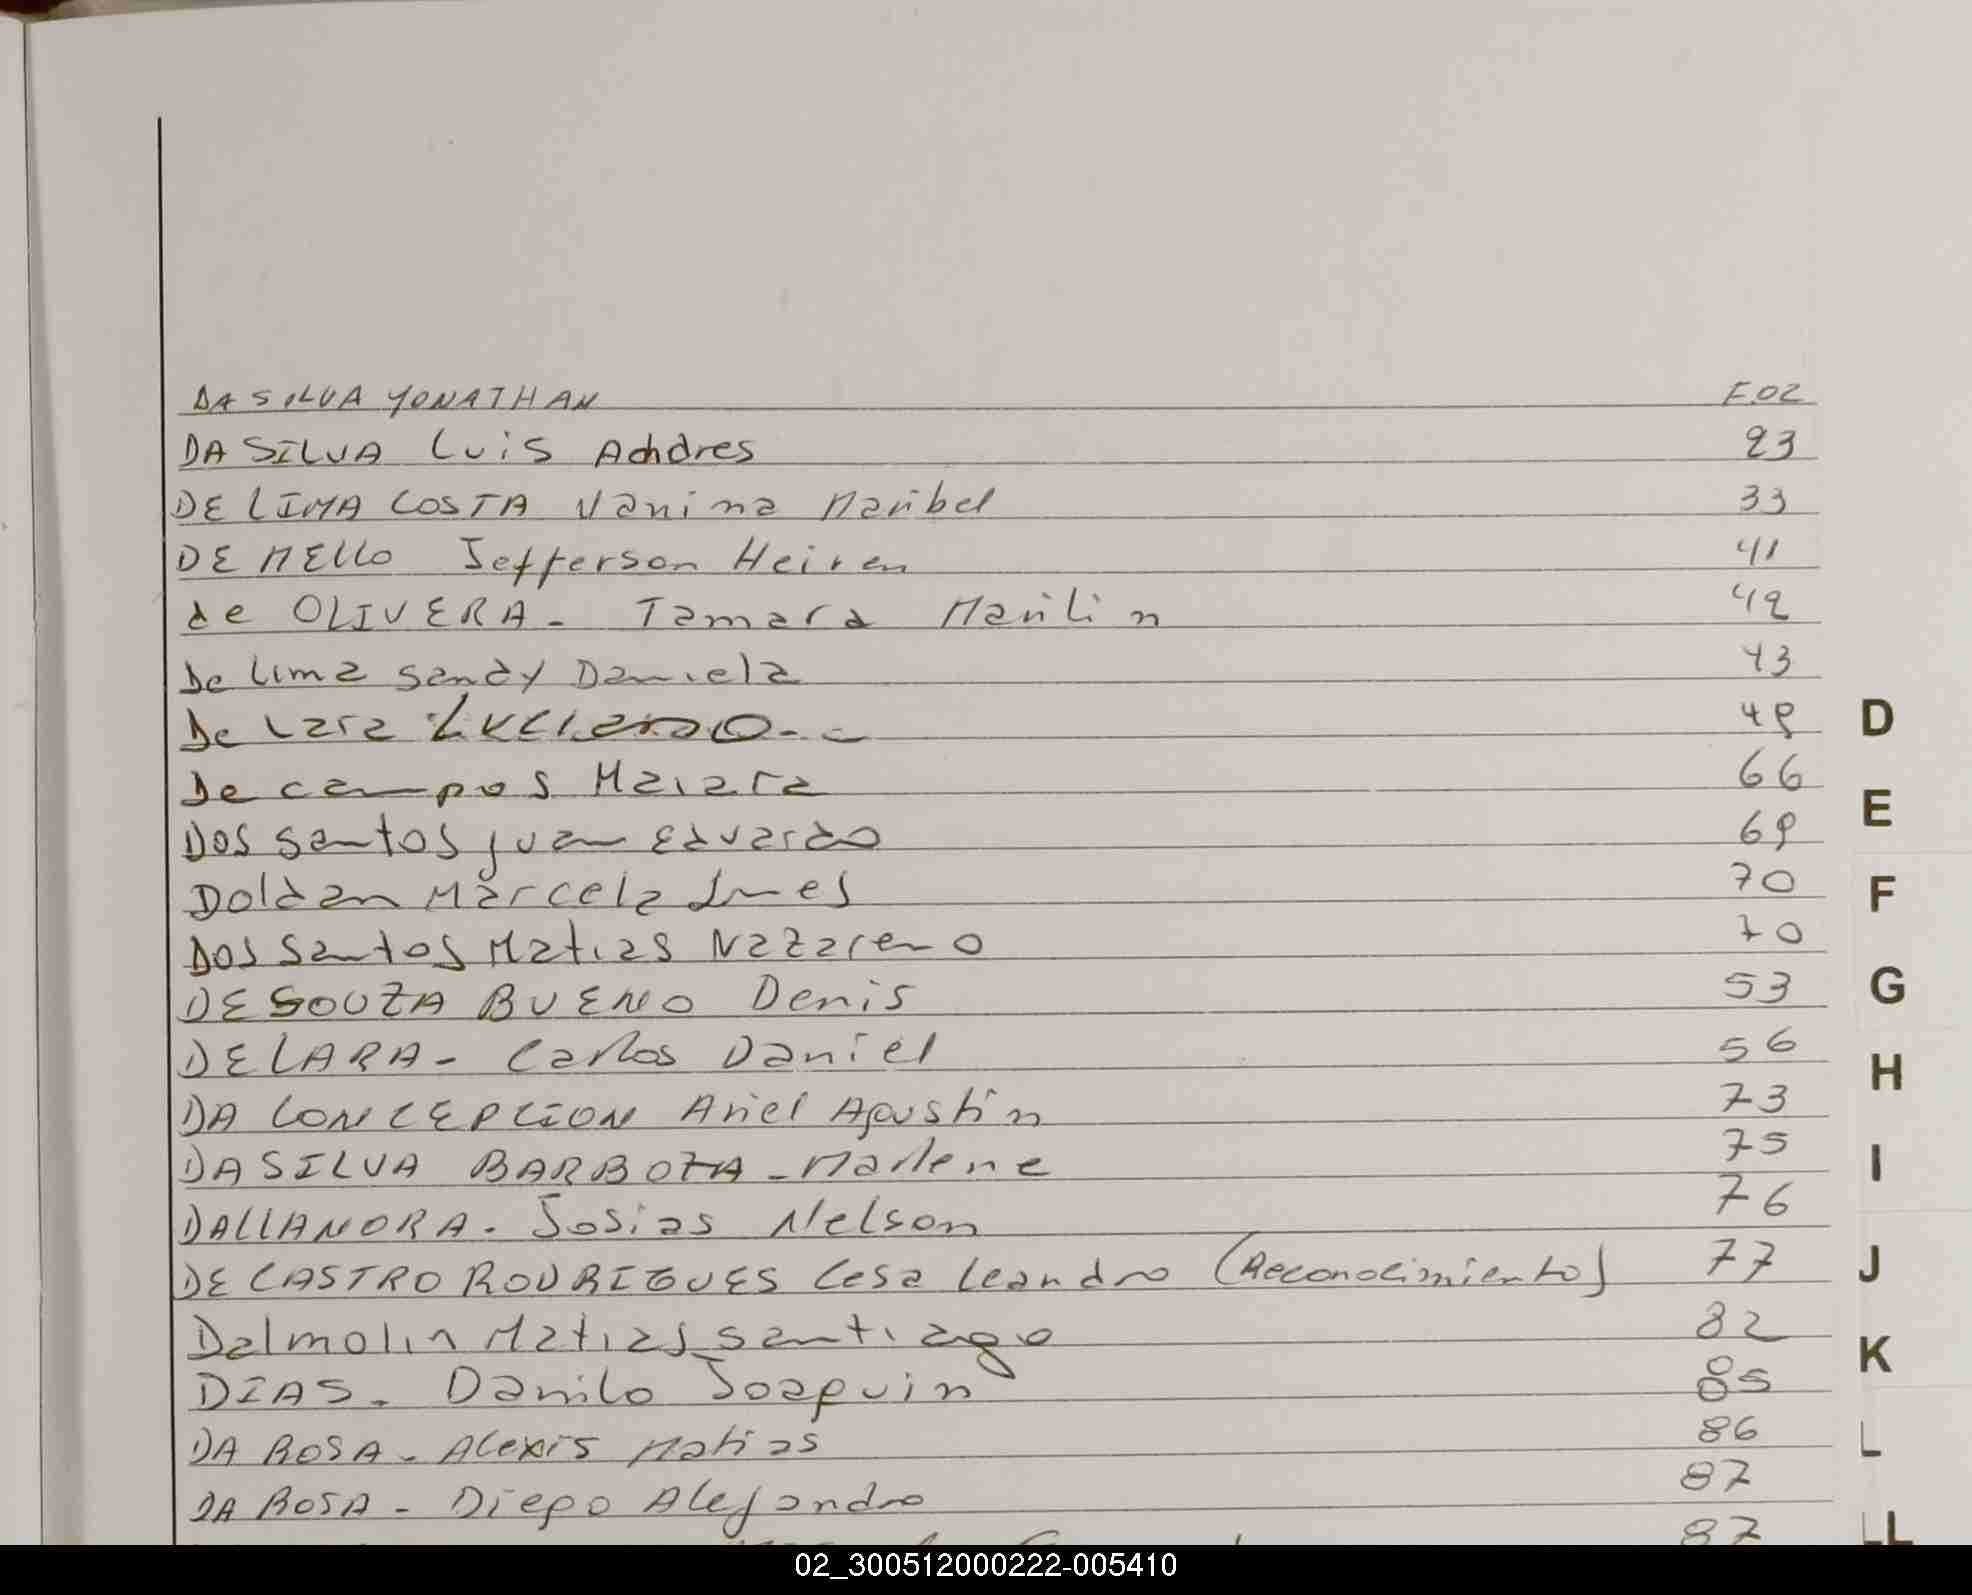 DA SILVA YONATHAN F.02
DA SILVA Luis Andres 23
DE LIMA COSTA Vanina Maribel 33
DE MELLO Jefferson Heiren 41
de OLIVERA - Tamara Marilin 42
De Lima Sandy Daniela 43
De Lara Luciano 49
De campos Maiara 66
Dos santos juan Eduardo 69
Doldan Marcela Ines 70
Dos Santos Matias Nazareno 70
DE SOUZA BUENO Denis 53
DE LARA - Carlos Daniel 56
DA CONCEPCION Ariel Agustin 73
DA SILVA BARBOZA - Marlene 75
DALLANORA - Josias Nelson 76
DE CASTRO RODRIGUES Cesa Leandro (Reconocimiento) 77
Dalmolin Matias santiago 82
DIAS - Danilo Joaquin 85
DA ROSA - Alexis Matias 86
DA ROSA - Diego Alejandro 87
87
D
E
F
G
H
I
J
K
L
LL
02_300512000222-005410